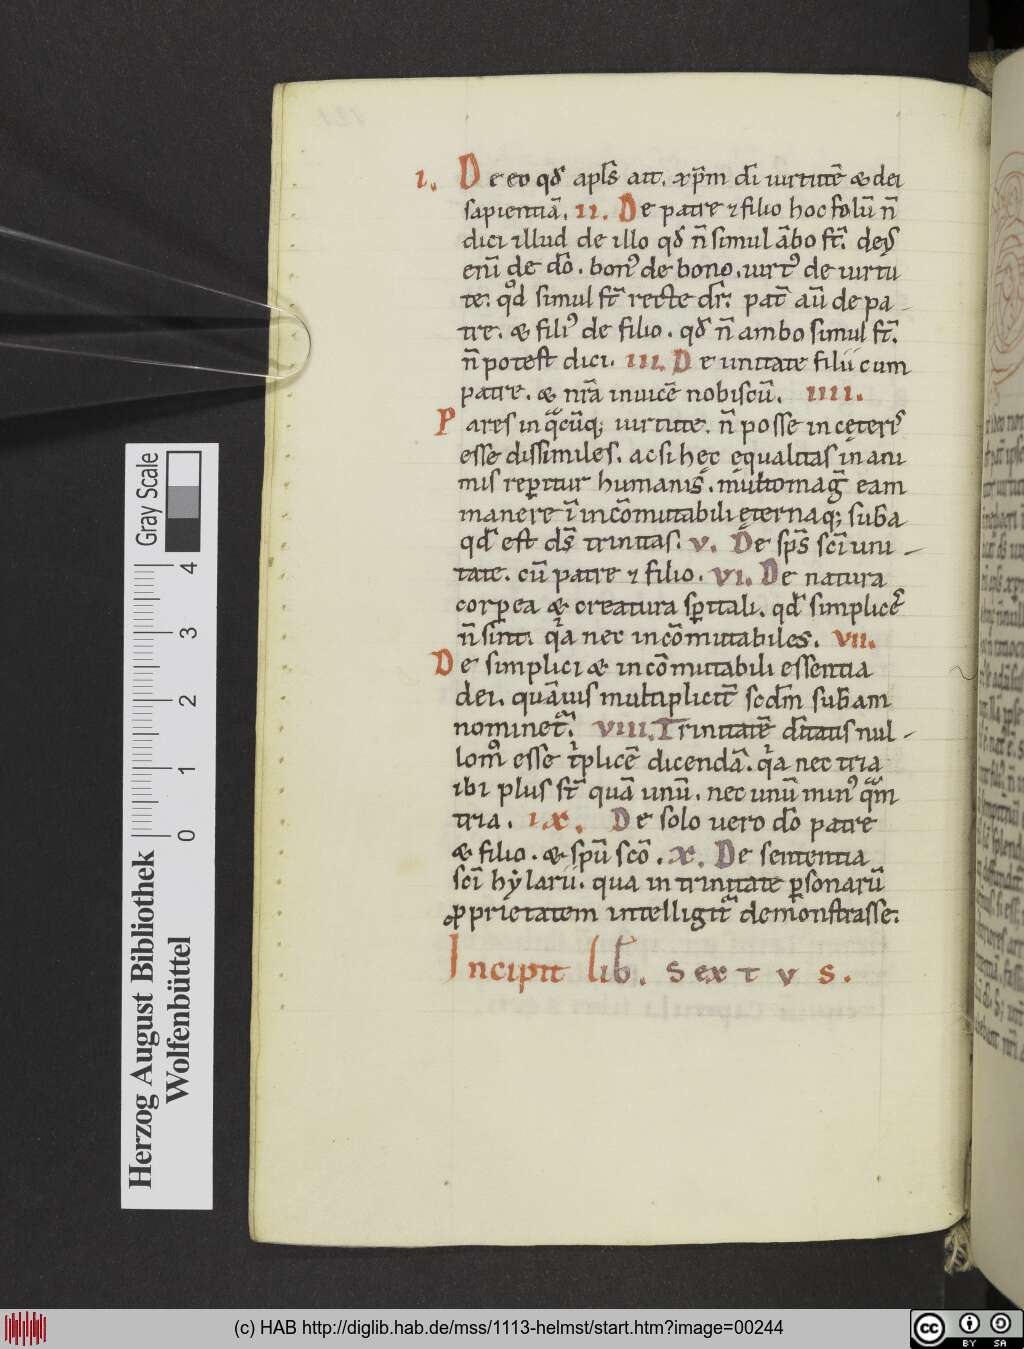 I. De eo qđ apl̄s ait. xp̄m dī uirtutē & dei
sapientiā. II. De patre ⁊ filio hoc solū n̄
dici illud de illo qđ n̄ simul ābo sт̄. deꝰ
enū de dō. bonꝰ de bono. uirtꝰ de uirtu
te. qͦd simul sт̄ recte dr̄. pat̄ aū de pa
tre. & filiꝰ de filio. qđ n̄ ambo simul sт̄.
n̄ potest dici. III. De unitate filii cum
patre. & nr̄a inuicē nobiscū. IIII.
Pares in qͣcūq; uirtute. n̄ posse in cęterꝭ
esse dissimiles. ac si hęc equalitas in ani
mis rep̄itur humanis. multomaḡ eam
manere ī incōmutabili ęternaq; sub̄a
qđ est dꝭ trinitas. V. De sp̄s scī uni
tate. cū patre ⁊ filio. VI. De natura
corp̄ea & creatura sp̄itali. qđ simplicēs
n̄ sint. qͥa nec incōmutabiles. VII.
De simplici & incōmutabili essentia
dei. quāuis multiplicit̄ scdm̄ sub̄am
nominetͣ. VIII. Trinitatē dītatis nul
lomͦ esse tͥplicē dicendā. qͥa nec tria
ibi plus sт̄ quā unū. nec unū minꝰ qͣm
tria. IX. De solo uero dō patre
& filio. & spū scō. X. De sententia
scī hẏlarii. qua in trinitate p̱sonarū
ꝓprietatem intelligit̄ demonstrasse.
Incipit lib̄. SEXTVS.
Herzog August Bibliothek
Wolfenbüttel
Gray Scale
0 1 2 3 4
(c) HAB http://diglib.hab.de/mss/1113-helmst/start.htm?image=00244
cc BY SA